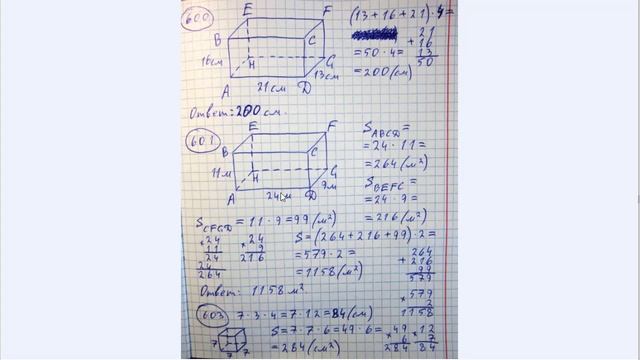 600
E F
B C
16см H G
21см 13см
A D
(13+16+21)·4=
21
+16
13
50
=50·4=
=200(см)
Ответ: 200 см.
601
E F
B C
11м H G
24м 9м
A D
S ABCD =
=24·11=
=264(м²)
S BEFC =
=24·9=
=216(м²)
S CFGD = 11·9=99(м²)
×24
11
24
24
264
×24
9
216
S=(264+216+99)·2=
=579·2=
=1158(м²)
264
+216
99
579
×579
2
1158
Ответ: 1158 м²
603
7·3·4=7·12=84(см)
7 7 7
S=7·7·6=49·6=
=264(м²)
×49
6
284
×12
7
84